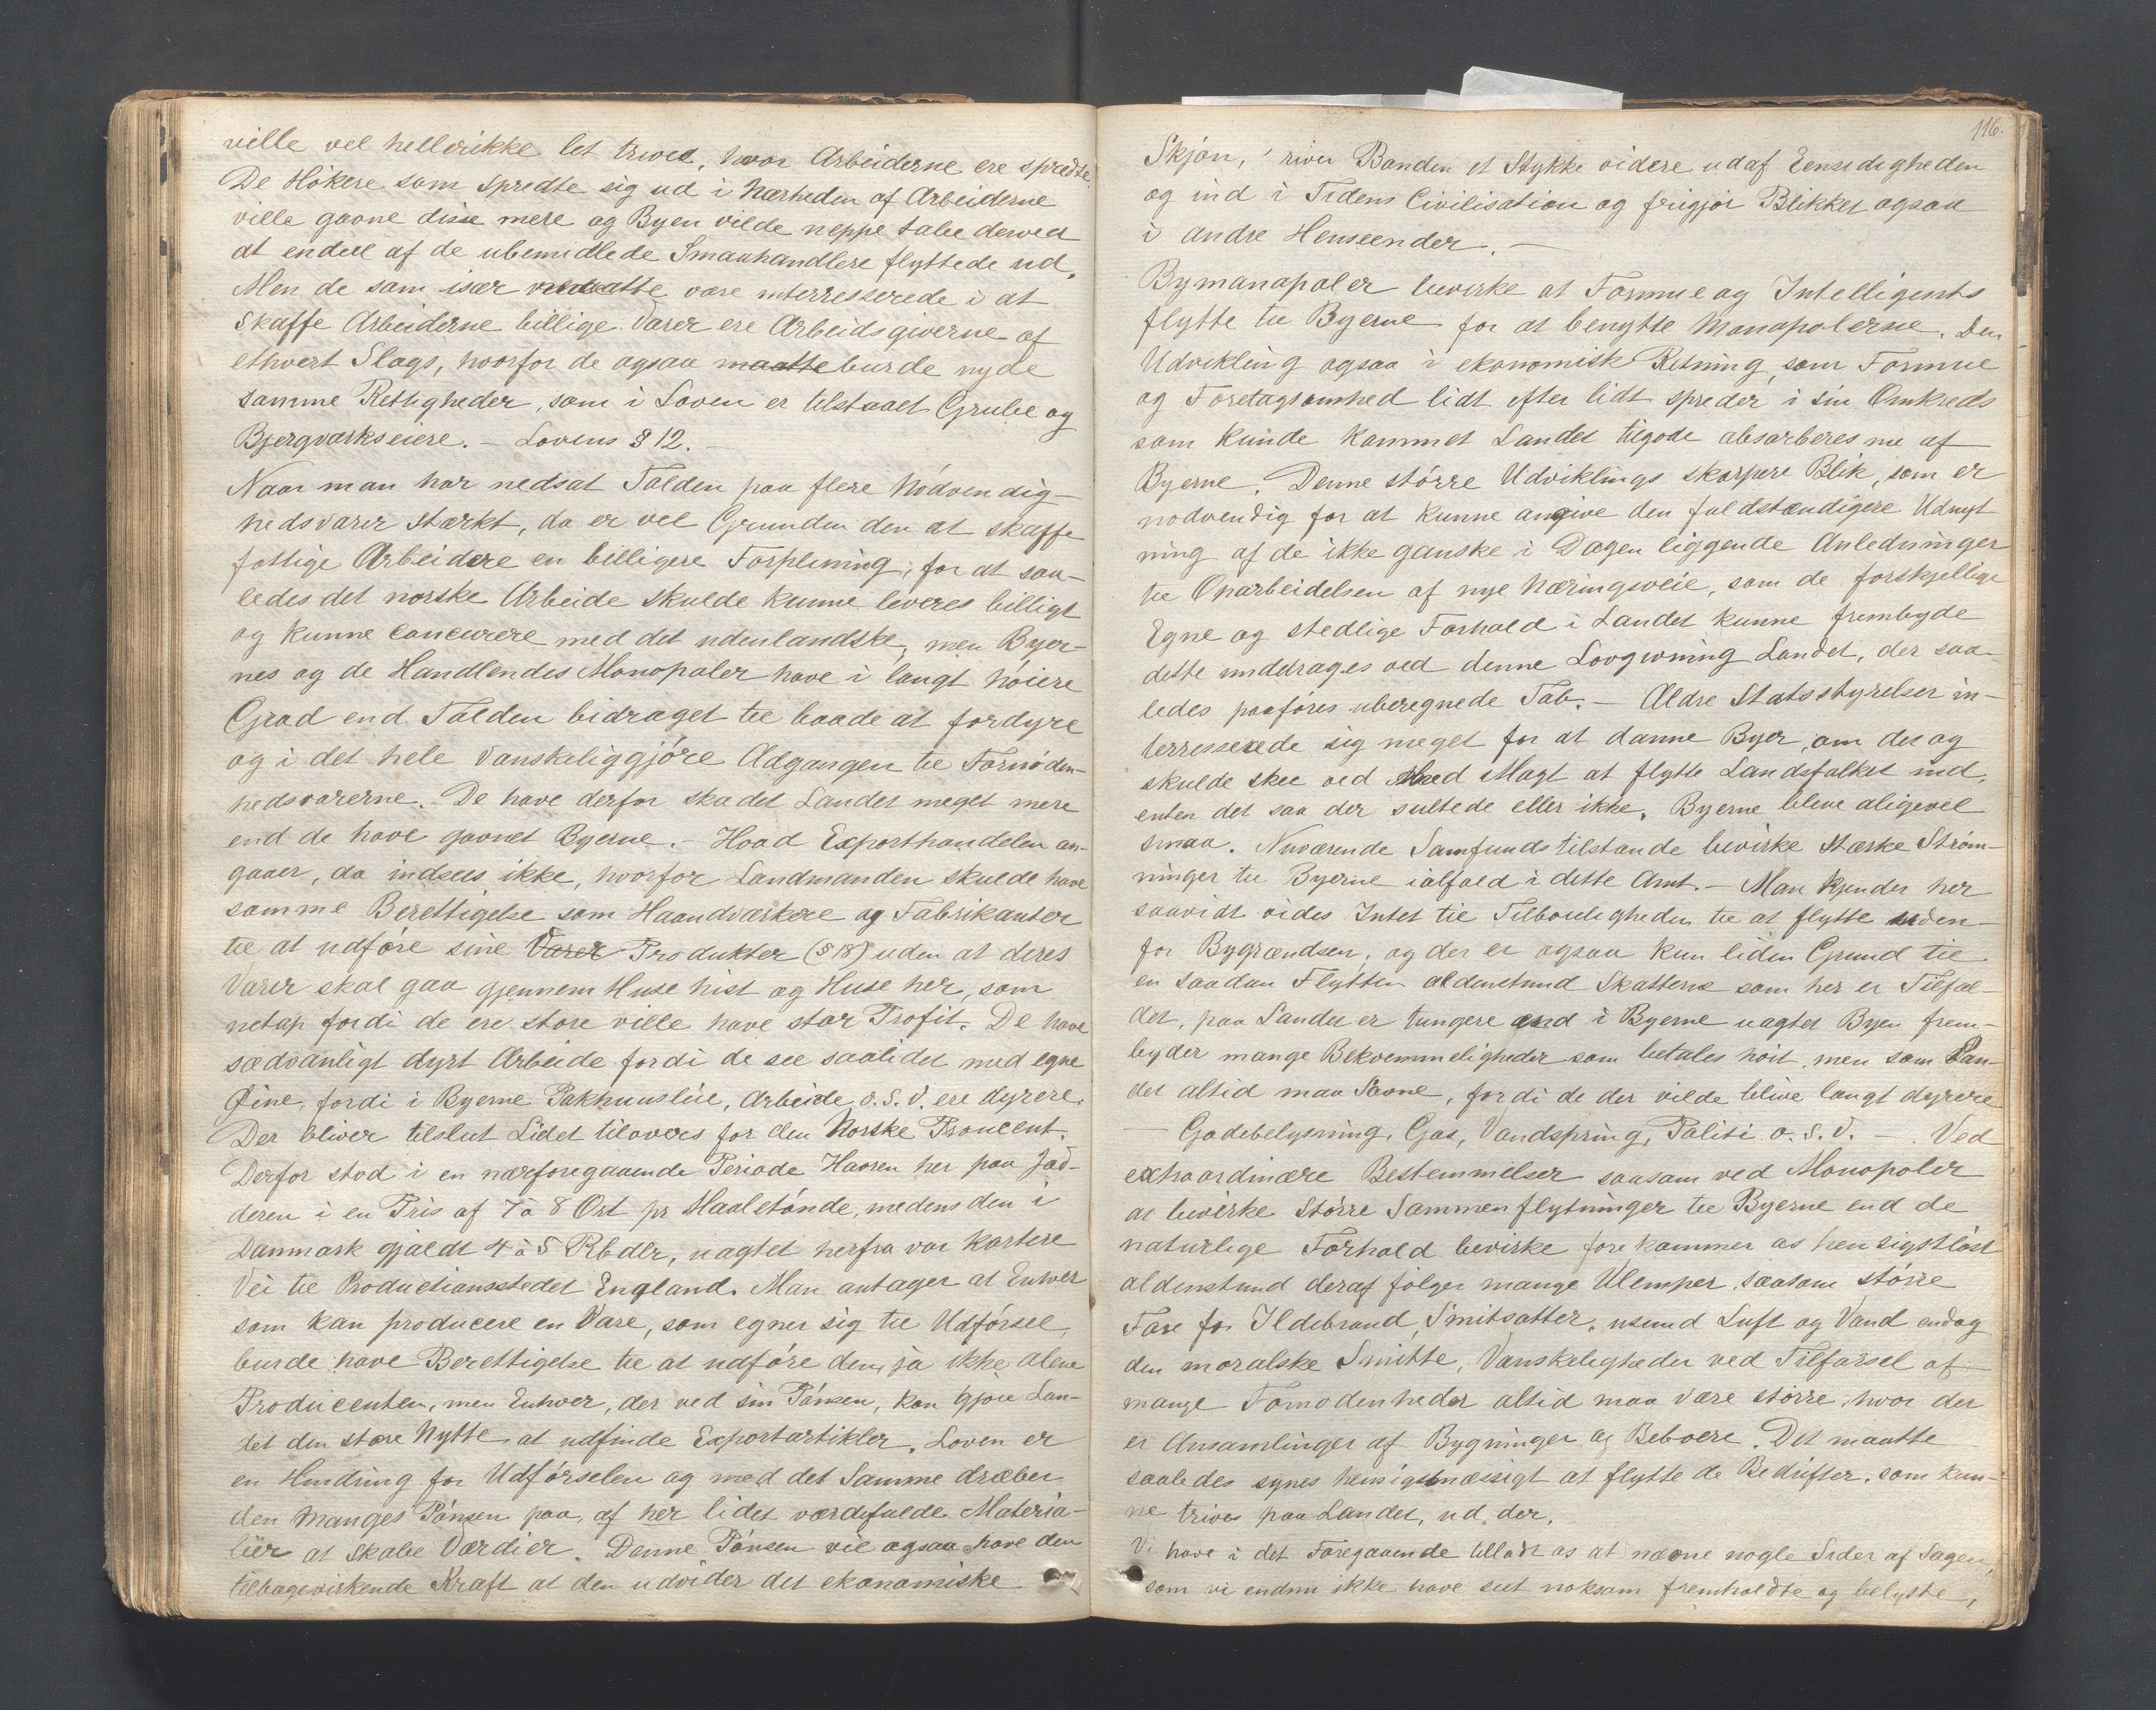 ville vel hellerikke let trives, hvor Arbeiderne ere spredte.
De Høkere som spredte sig ud i Nærheden af Arbeiderne
ville gavne disse mere og Byen vilde neppe tabe derved
at endeel af de ubemidlede Smaahandlere flyttede ud.
Men de som især maatte være interresserede i at
skaffe Arbeiderne billige Varer ere Arbeidsgiverne af
ethvert Slags, hvorfor de ogsaa maatte burde nyde
samme Rettigheder, som i Loven er tilstaaet Grube og
Bjergværkseiere. – Lovens § 12. –
Naar man har nedsat Tolden paa flere Nødvendig-
hedsvarer stærkt, da er vel Grunden den at skaffe
fattige Arbeidere en billigere Forpleining, for at saa-
ledes det norske Arbeide skulde kunne leveres billigt
og kunne concurere med det udenlandske, men Byer-
nes og de Handlendes Monopoler have i langt høiere
Grad end Tolden bidraget til baade at fordyre
og i det hele vanskeliggjøre Adgangen til Fornøden-
hedsvarerne. – De have derfor skadet Landet meget mere
end de have gavnet Byerne. – Hvad Exporthandelen an-
gaaer, da indsees ikke, hvorfor Landmanden skulde have
samme Berettigelse som Haandværkere og Fabrikanter
til at udføre sine Varer Produkter (§ 18) uden at deres
Varer skal gaa gjennem Huse hist og Huse her, som
netop fordi de ere store ville have stor Profit. De have
sædvanligt dyrt Arbeide fordi de see saalidet med egne
Øine, fordi i Byerne Pakhuusleie, Arbeide o. s. v. ere dyrere.
Der bliver tilslut Lidet tilovers for den Norske Producent.
Derfor stod i en nærforegaaende Periode Havren her paa Jæd-
deren i en Pris af 7 à 8 Ort pr Maaletønde, medens den i
Danmark gjaldt 4 à 5 Rbdlr, uagtet herfra var kortere
Vei til Productionsstedet England. Man antager at Enhver
som kan producere en Vare, som egner sig til Udførsel,
burde have Berettigelse til at udføre den, ja ikke alene
Producenten, men Enhver, der ved sin Pønsen, kan gjøre Lan-
det den store Nytte at udfinde Exportartikler. Loven er
en Hindring for Udførselen og med det Samme dræber
den Manges Pønsen paa, af her lidet værdifulde Materia-
lier at skabe Værdier. Denne Pønsen vil ogsaa have den
tilbagevirkende Kraft at den udvider det økonomiske
116.
Skjøn, river Bonden et Stykke videre udaf Eensidigheden
og ind i Tidens Civilisation og frigjør Blikket ogsaa
i andre Henseender. –
Bymonopoler bevirke at Formue og Intelligents
flytte til Byerne for at benytte Monopolerne. Den
Udvikling ogsaa i økonomisk Retning, som Formue
og Foretagsomhed lidt efter lidt spreder i sin Omkreds
som kunde kommet Landet tilgode absorberes nu af
Byerne. Denne større Udviklings skarpere Blik, som er
nødvendig for at kunne angive den fuldstændigere Udnyt-
ning af de ikke ganske i Dagen liggende Anledninger
til Oparbeidelsen af nye Næringsveie, som de forskjellige
Egne og stedlige Forhold i Landet kunne frembyde
dette unddrages ved denne Lovgivning Landet, der saa-
ledes paaføres uberegnede Tab. – Ældre Statsstyrelser in-
terresserede sig meget for at danne Byer, om det og
skulde skee ved Med Magt at flytte Landsfolket ind,
enten det saa der sultede eller ikke. Byerne bleve aligevel
smaa. Nuværende Samfundstilstande bevirke stærke Strøm-
ninger til Byerne ialfald i dette Amt. – Man kjender her
saavidt vides Intet til Tilbøieligheden til at flytte uden-
for Bygrændsen, og der er ogsaa kun liden Grund til
en saadan Flytten aldenstund Skatterne som her er Tilfæl-
det, paa Landet er tungere end i Byerne uagtet Byen frem-
byder mange Bekvemmeligheder som betales høit, men som Lan-
det altid maa Savne, fordi de der vilde blive langt dyrere
– Gadebelysning, Gas, Vandspring, Politi o. s. v. – . Ved
extraordinære Bestemmelser saasom ved Monopoler
at bevirke større Sammenflytninger til Byerne end de
naturlige Forhold bevirke forekommer os hensigtsløst
aldenstund deraf følger mange Ulemper, saasom større
Fare for Ildebrand, Smitsotter, usund Luft og Vand endog
den moralske Smitte, Vanskeligheder ved Tilførsel af
mange Fornødenheder altid maa være større, hvor der
er Ansamlinger af Bygninger og Beboere. Det maatte
saaledes synes hensigtsmæssigt at flytte de Bedrifter, som kun-
ne trives paa Landet, ud der.
Vi have i det Foregaaende tilladt os at nævne nogle Sider af Sagen,
som vi endnu ikke have seet noksom fremholdte og belyste,